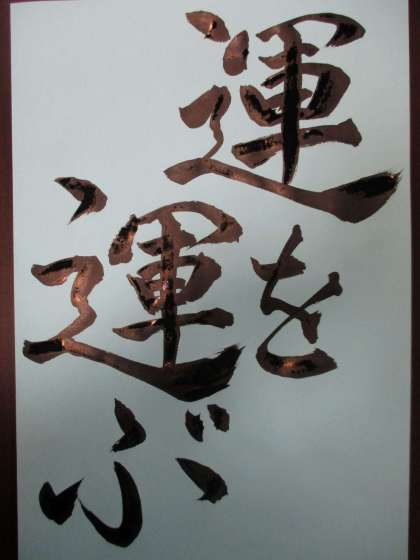 運を
運ぶ